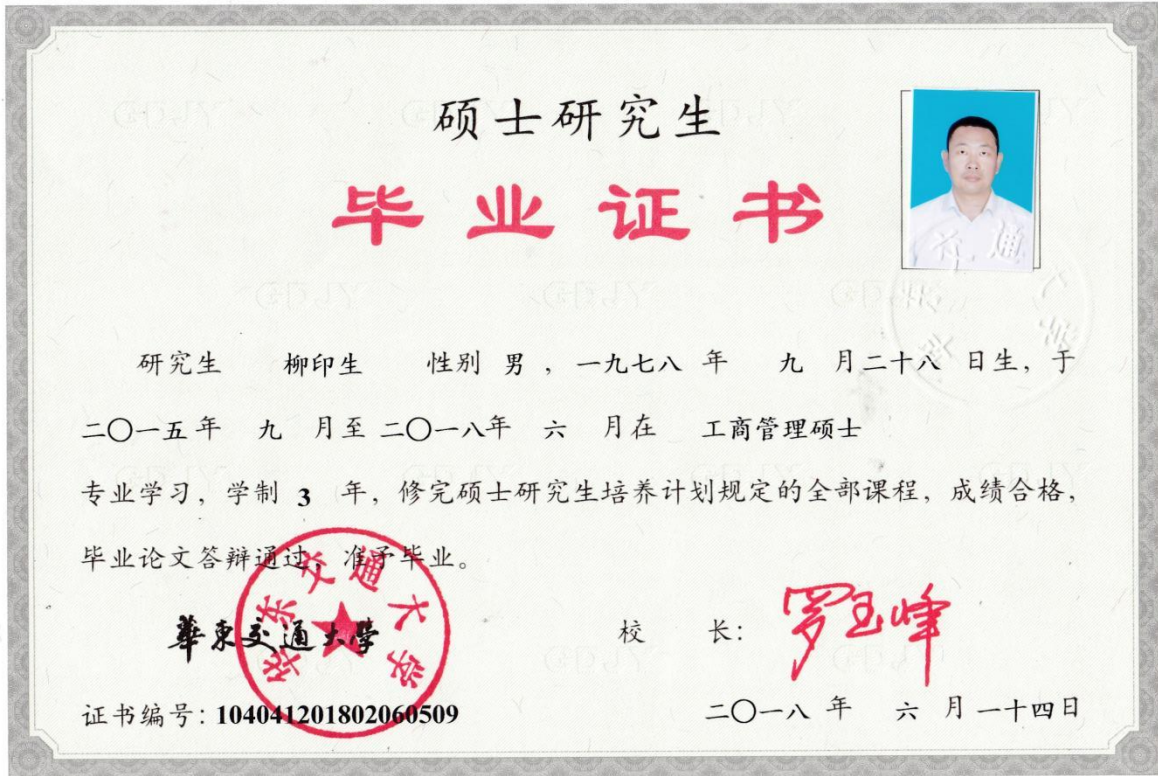 硕士研究生
毕业证书
研究生 柳印生 性别 男 ，一九七八 年 九 月二十八 日生，于
二〇一五年 九 月至二〇一八年 六 月在 工商管理硕士
专业学习，学制 3 年，修完硕士研究生培养计划规定的全部课程，成绩合格，
毕业论文答辩通过，准予毕业。
華東交通大學
华东交通大学
校 长：罗玉峰
证书编号：104041201802060509
二〇一八 年 六 月 一十四日